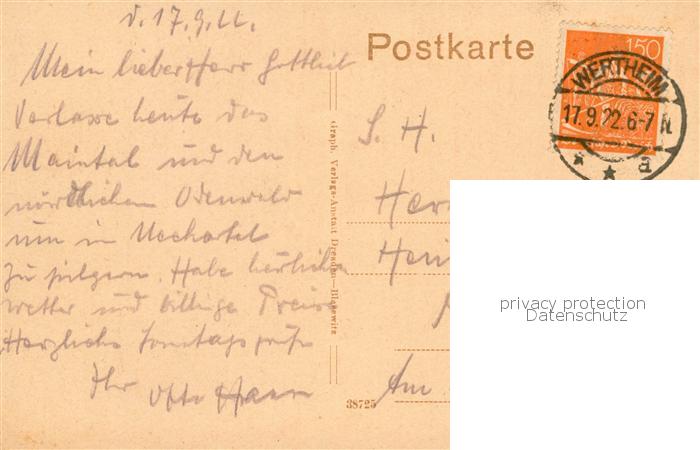 d. 17.9.22.
Mein lieber Herr Gottlieb
Verlasse heute das
Maintal und den
nördlichen Odenwald
um in Neckartal
zu pilgern. Habe herrliches
Wetter und billige Preise
Herzliche Sonntagsgrüße
Ihr Otto Haan
Postkarte
150
WERTHEIM
17.9.22.6-7 N.
* * a
S. H.
Her
Hein
Am
Graph. Verlags-Anstalt Dresden—Blasewitz
38725
privacy protection
Datenschutz